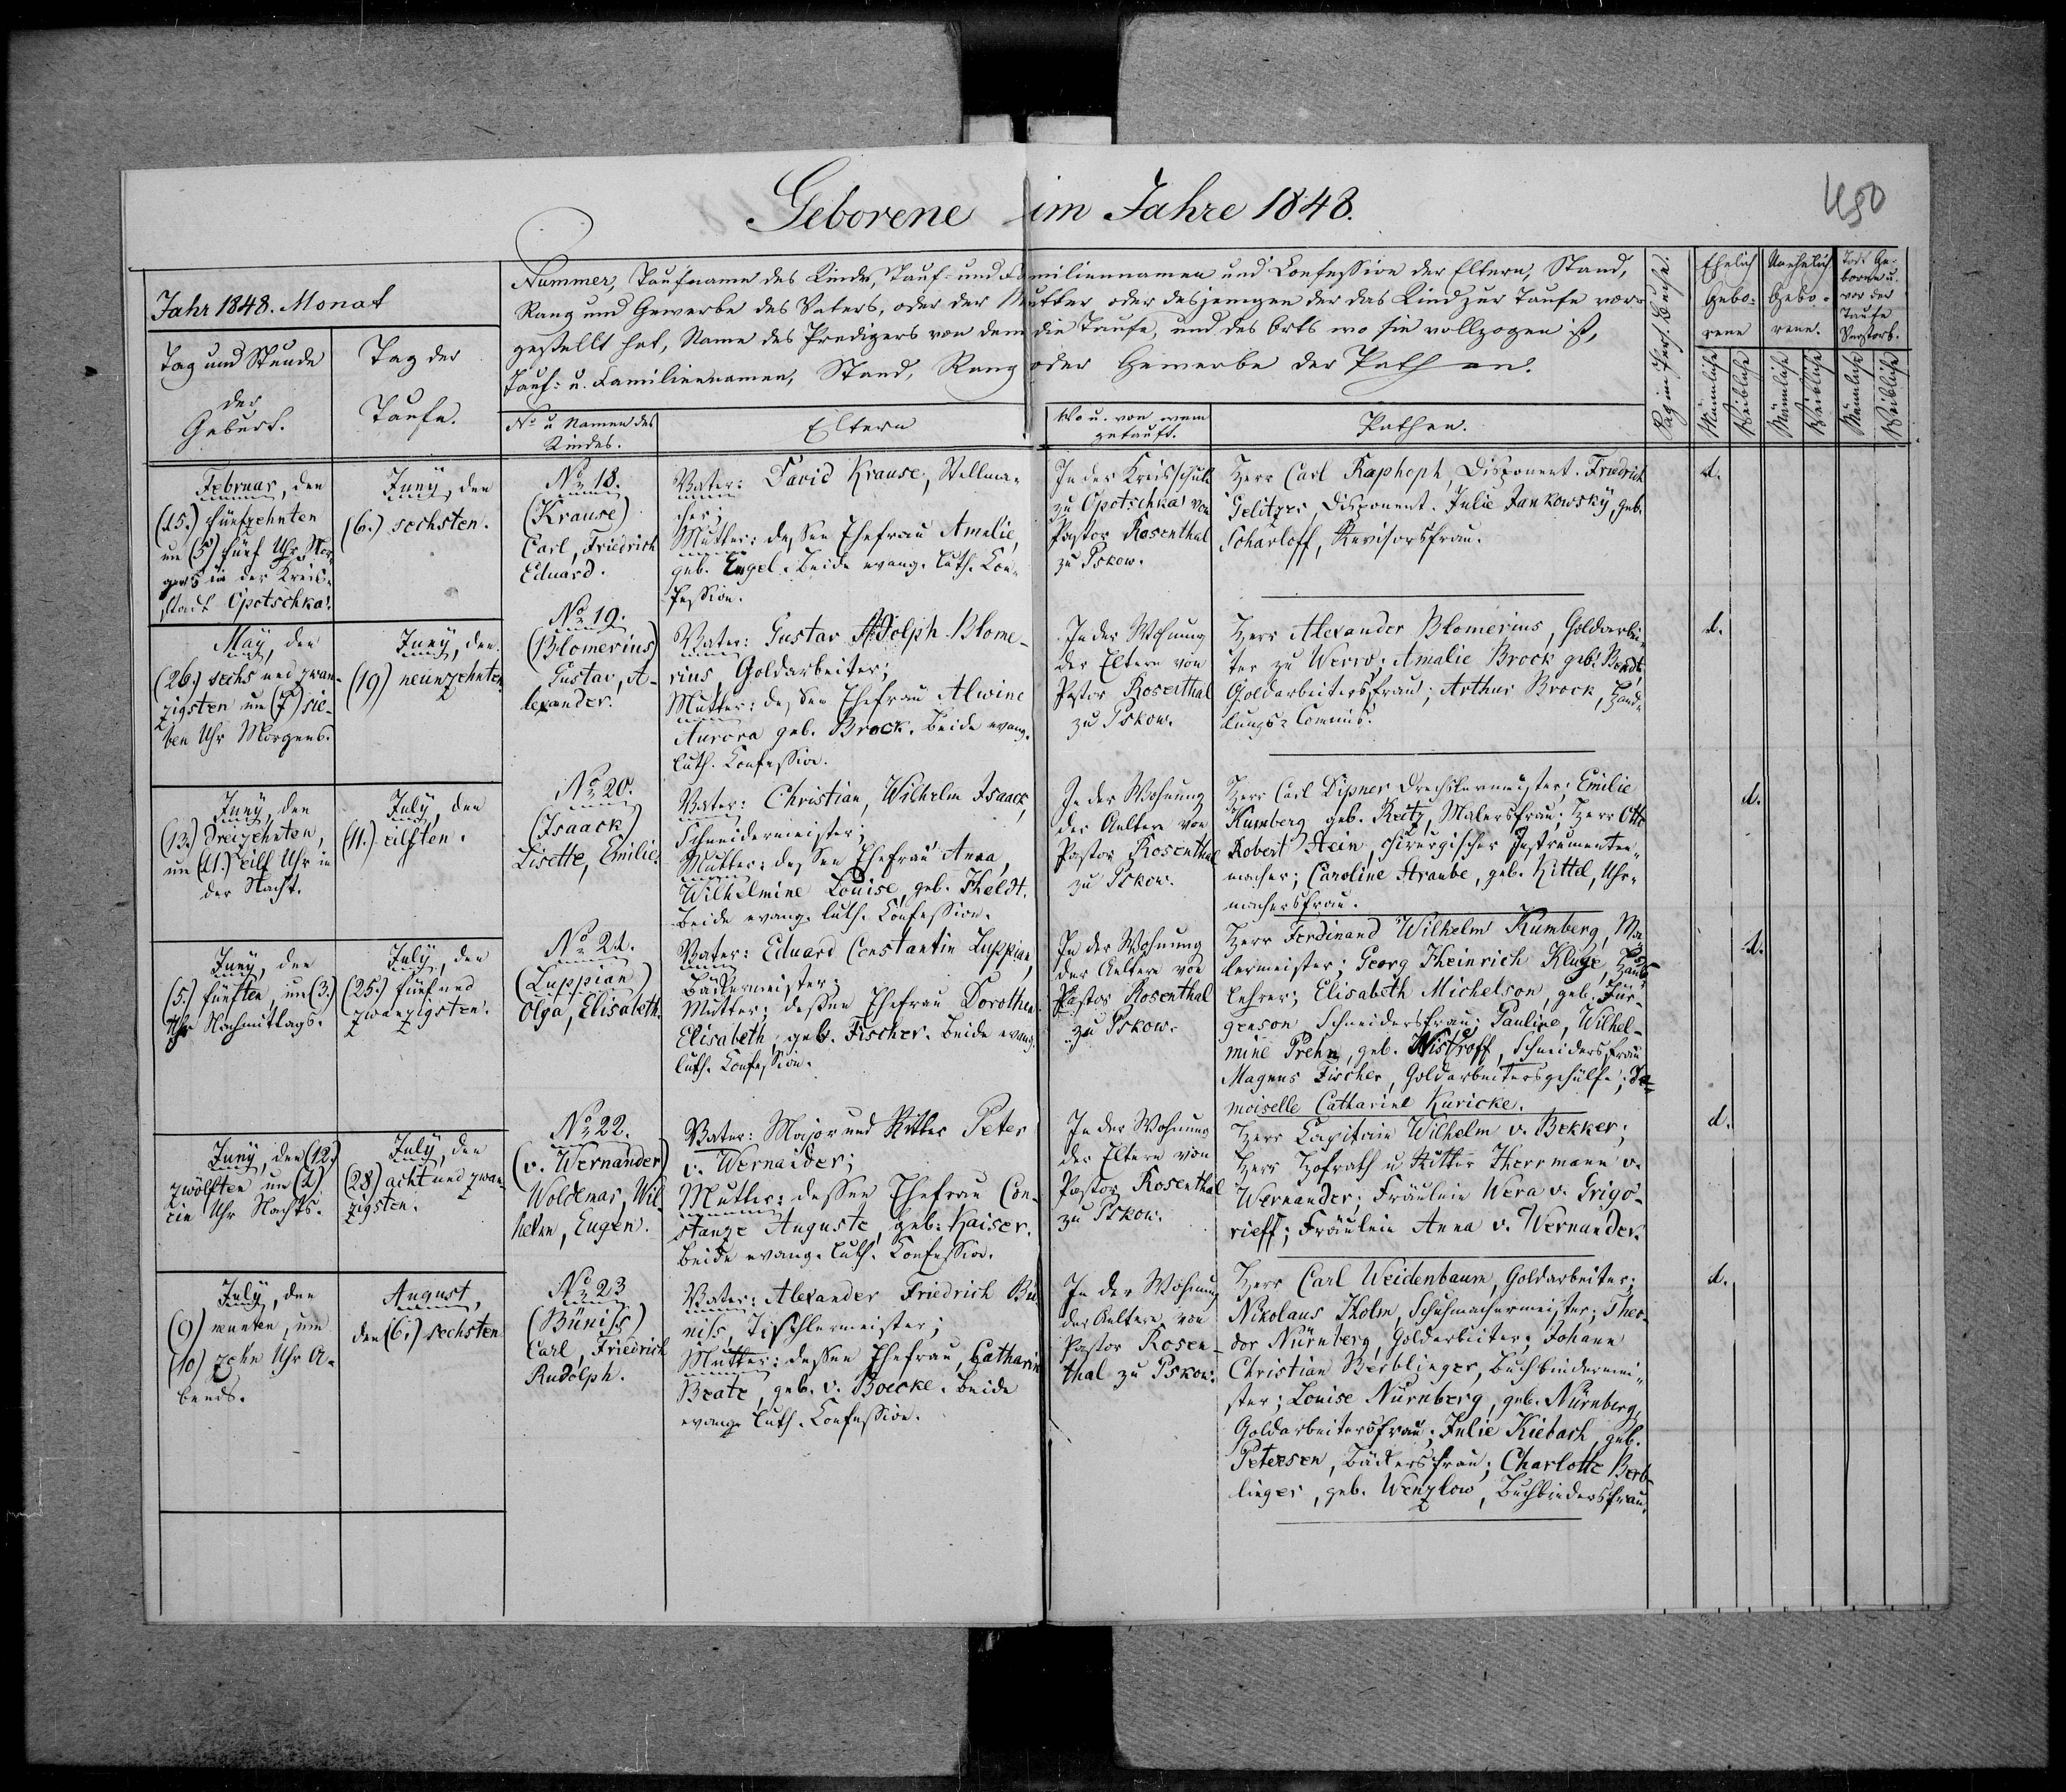 Geborene im Jahre 1848.
450
Jahr 1848. Monat
Tag und Stunde
der
Geburt.
Tag der
Taufe.
Nummer, Taufname des Kindes, Tauf- und Familiennamen und Confession der Eltern, Stand,
Rang und Gewerbe des Vaters, oder der Mutter oder desjenigen der das Kind zur Taufe vor-
gestellt hat, Name des Predigers von dem die Taufe, und des Orts wo sie vollzogen ist,
Tauf- u. Familiennamen, Stand, Rang oder Gewerbe der Pathen.
No u Namen des
Kindes.
Eltern
Wo u. von wem
getauft.
Pathen.
Pag im Pers. Buche.
Ehelich
Gebo-
rene
Unehelich
Gebo-
rene.
Todt Ge-
borne u.
vor der
Taufe
Verstorb.
Männliche
Weibliche
Männliche
Weibliche
Männliche
Weibliche
Februar, den
(15.) fünfzehnten
um (5) fünf Uhr Mor-
gens in der Kreis-
stadt Opotschka.
Juny, den
(6.) sechsten.
No 18.
(Krause)
Carl, Friedrich
Eduard.
Vater: David Krause, Stellma-
cher;
Mutter: dessen Ehefrau Amalie,
geb. Engel. Beide evang. luth. Con-
fession.
In der Kreisschule
zu Opotschka von
Pastor Rosenthal
zu Pskow.
Herr Carl Kaphoph, Disponent. Friedrich
Gelitzer Disponent. Julie Jankowsky, geb.
Scharloff, Revisorsfrau.
1.
May, den
(26.) sechs und zwan-
zigsten um (7) sie-
ben Uhr Morgens.
Juny, den
(19) neunzehnten
No 19.
(Blomerius)
Gustav, A-
lexander.
Vater: Gustav Adolph Blome-
rius, Goldarbeiter;
Mutter: dessen Ehefrau Alwine
Aurora geb. Brock. Beide evang.
luth. Confession.
In der Wohnung
der Eltern von
Pastor Rosenthal
zu Pskow.
Herr Alexander Blomerius, Goldarbei-
ter zu Werro; Amalie Brock geb. Bendt,
Goldarbeitersfrau; Arthur Brock, Hand-
lungs-Commis.
1.
Juny, den
(13.) dreizehnten,
um (11.) eilf Uhr in
der Nacht.
July, den
(11.) eilften.
No 20.
(Isaack)
Lisette, Emilie.
Vater: Christian, Wilhelm Isaack,
Schneidermeister;
Mutter: dessen Ehefrau Anna,
Wilhelmine Louise, geb. Theldt.
Beide evang. luth. Confession.
In der Wohnung
der Aeltern von
Pastor Rosenthal
zu Pskow.
Herr Carl Dipner Drechslermeister; Emilie
Kumberg geb. Reitz, Malersfrau; Herr Otto
Robert Stein, chirurgischer Instrumenten-
macher; Caroline Straube, geb. Kittel, Uhr-
machersfrau.
1.
Juny, den
(5.) fünften, um (3.)
Uhr Nachmittags.
July, den
(25.) fünf und
zwanzigsten.
No 21.
(Luppian)
Olga, Elisabeth.
Vater: Eduard Constantin Luppian,
Bäckermeister;
Mutter: dessen Ehefrau Dorothea
Elisabeth, geb. Fischer. Beide evang.
luth. Confession.
In der Wohnung
der Aeltern von
Pastor Rosenthal
zu Pskow.
Herr Ferdinand Wilhelm Kumberg, Ma-
lermeister; Georg Heinrich Kluge, Haus-
lehrer; Elisabeth Michelson, geb. Jür-
genson Schneidersfrau; Pauline, Wilhel-
mine Prehn, geb. Wistroff, Schneidersfrau
Magnus Fischer, Goldarbeitersgehülfe; De-
moiselle Catharine Kuricke.
1.
Juny, den (12.)
zwölften um (2)
Uhr Nachts.
July, den
(28) acht und zwan-
zigsten.
No 22.
(v. Wernander)
Woldemar, Wil-
helm, Eugen.
Vater: Major und Ritter Peter
v. Wernander;
Mutter: dessen Ehefrau Con-
stanze Auguste, geb: Kaiser.
Beide evang. luth. Confession.
In der Wohnung
der Eltern von
Pastor Rosenthal
zu Pskow.
Herr Capitain Wilhelm v. Bekker;
Herr Hofrath u Ritter Herrmann v.
Wernander; Fräulein Wera v. Grigo-
rieff; Fräulein Anna v. Wernander.
1.
July, den
(9) neunten, um
(10) zehn Uhr A-
bends.
August,
den (6.) sechsten
No 23
(Büniss)
Carl, Friedrich
Rudolph.
Vater: Alexander Friedrich Bü-
niss, Tischlermeister;
Mutter: dessen Ehefrau, Catharin
Beate, geb. v. Boecke. Beide
evang. luth. Confession.
In der Wohnung
der Aeltern von
Pastor Rosen-
thal zu Pskow.
Herr Carl Weidenbaum, Goldarbeiter;
Nikolaus Holm, Schuhmachermeister; Theo-
dor Nürnberg, Goldarbeiter; Johann
Christian Berblinger, Buchbindermei-
ster; Louise Nürnberg, geb. Nürnberg,
Goldarbeitersfrau; Julie Kiebach, geb.
Petersen, Bäckersfrau; Charlotte Berb-
linger, geb. Wenzlow, Buchbindersfrau.
1.